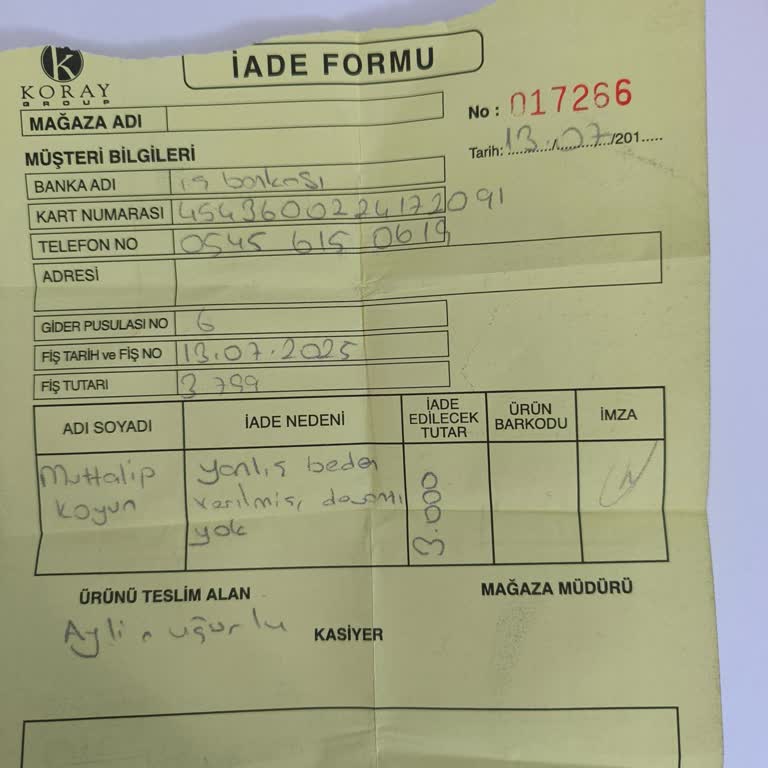 KORAY
GROUP
İADE FORMU
No : 017266
MAĞAZA ADI
Tarih: 13./.07./201.....
MÜŞTERİ BİLGİLERİ
BANKA ADI iş bankası
KART NUMARASI 4543600224172091
TELEFON NO 0545 615 0619
ADRESİ
GİDER PUSULASI NO 6
FİŞ TARİH ve FİŞ NO 13.07.2025
FİŞ TUTARI 3 799
ADI SOYADI İADE NEDENİ İADE EDİLECEK TUTAR ÜRÜN BARKODU İMZA
Muttalip yanlış beden 3.000
Koyun verilmiş, devamı
yok
ÜRÜNÜ TESLİM ALAN MAĞAZA MÜDÜRÜ
Aylin uğurlu KASİYER